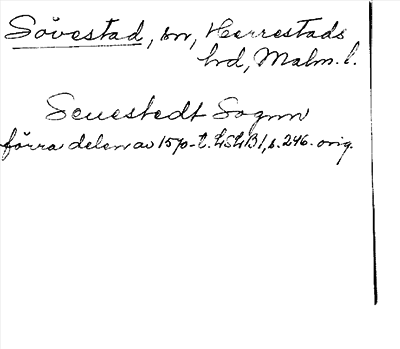 Sövestad, sn, Herrestads
hd, Malm. l.
Seuestedt Sognn
förra delen av 1570-t. LSLB 1, s. 246. orig.